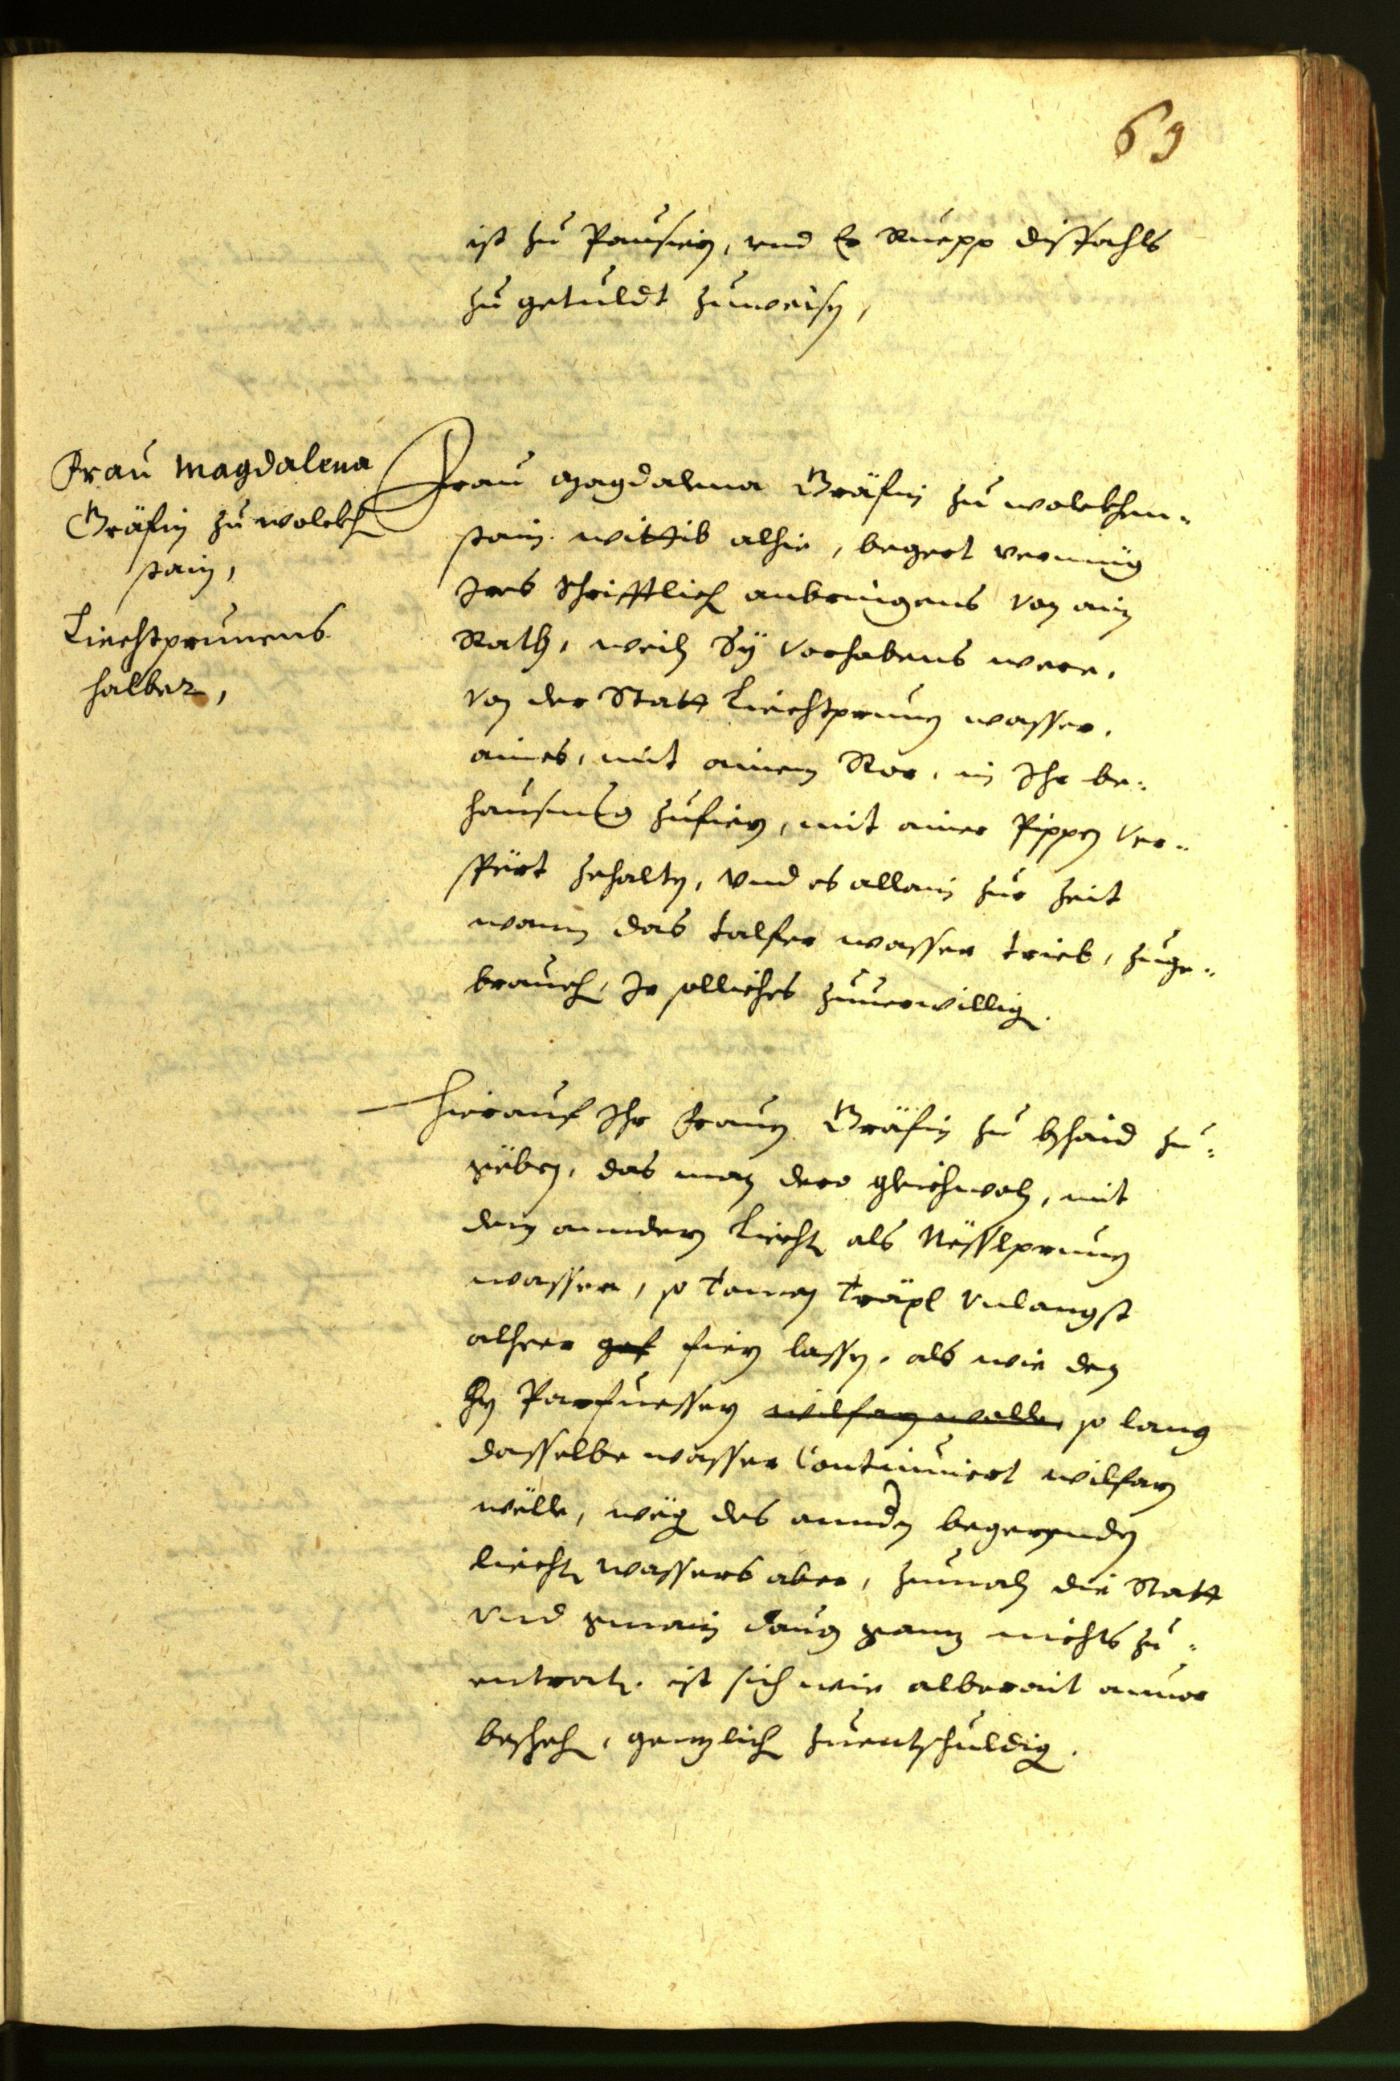 69
ist zu Pausiern, vnd Er Ruepp dissfahls
zu getuldt zuweisen,
Frau Magdalena
Gräfin zu wolckh
stain,
Liechtprunens
halber,
Frau Magdalena Gräfin zu wolckhen-
stain wittib alhie, begert vermüg
Jres schrifftlich anbringens von ain
Rath, weiln Sÿ vorhabens were,
von der Statt Liechtprunn wasser,
aines, mit ainem Ror, in Jhr be-
hausung zufiern, mit ainer Pippen ver-
spört zehalten, vnd es allain zur zeit
wann das talfer wasser trieb, zuge-
brauchen, Jr solliches zuuerwilligen.
Hierauf Jhr Frauen Gräfin zu bschaid zu
geben, das man dero gleichwoln, mit
dem anndern Liecht als Nësslprunn
wasser, so Tomen Träxl vnlangst
alheer fiern lassen, als wie den
Hn Parfuessern wilfarn wolle so lang
dasselbe wasser Continuiert wilfarn
wölle, wegen des anndern begerenden
liecht wassers aber, zumaln die Statt
vnd gmain daran ganz nichts zu-
entraten, ist sich wie alberait annor
beschehen, genzlich zuentschuldigen.